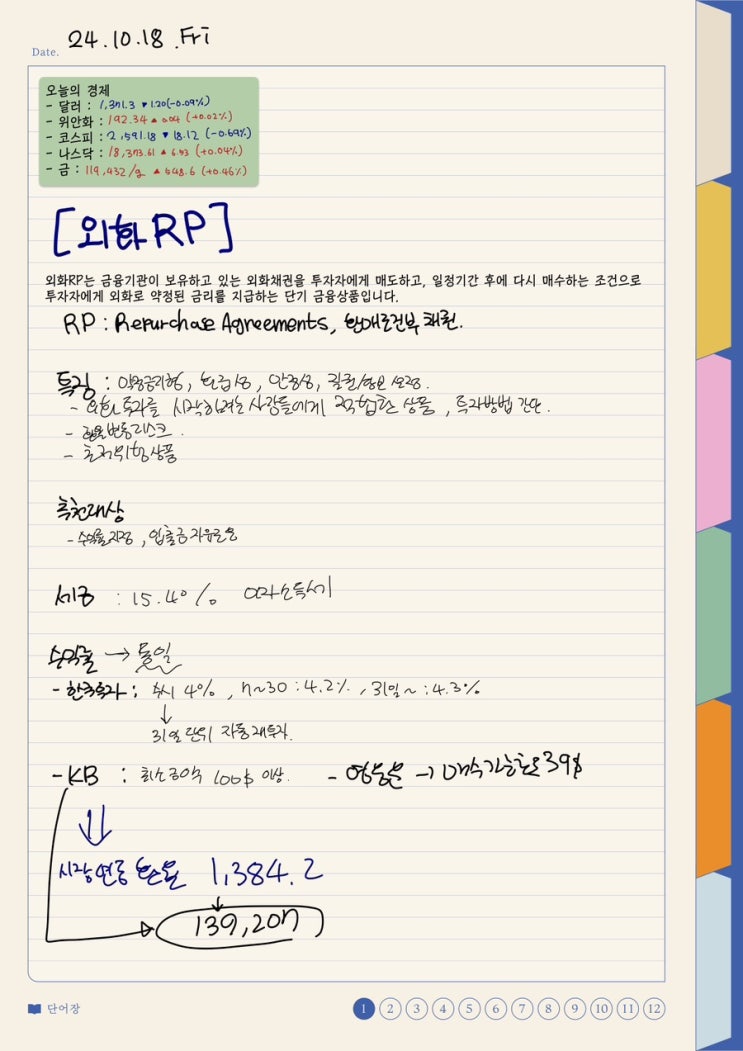 Date. 24.10.18 .Fri
오늘의 경제
- 달러 : 1,371.3 ▼ 1.20(-0.09%)
- 위안화 : 192.34 ▲ 0.04 (+0.02%)
- 코스피 : 2,591.18 ▼ 18.12 (-0.69%)
- 나스닥 : 18,373.61 ▲ 6.53 (+0.04%)
- 금 : 119,432/g ▲ 548.6 (+0.46%)
[외화 RP]
외화RP는 금융기관이 보유하고 있는 외화채권을 투자자에게 매도하고, 일정기간 후에 다시 매수하는 조건으로
투자자에게 외화로 약정된 금리를 지급하는 단기 금융상품입니다.
RP : Repurchase Agreements, 환매조건부 채권.
특징 : 약정금리형, 환금성, 안정성,
- 외화 투자를 시작하려는 사람들에게 적합한 상품, 투자방법 간단.
- 환율변동리스크.
- 초저위험상품
추천대상
- 수익률지정, 입출금 자유로운
세금 : 15.4% 이자소득세
수익률 → 동일
- 한국투자 : 수시 4%, 7~30 : 4.2%, 31일~ : 4.3%
↓
31일 단위 자동재투자.
- KB : 최소금액 100$ 이상. - 영웅문 → 매수가능한은 39$
⇓
시장연동환율 1,384.2
↓
139,207
단어장
1 2 3 4 5 6 7 8 9 10 11 12